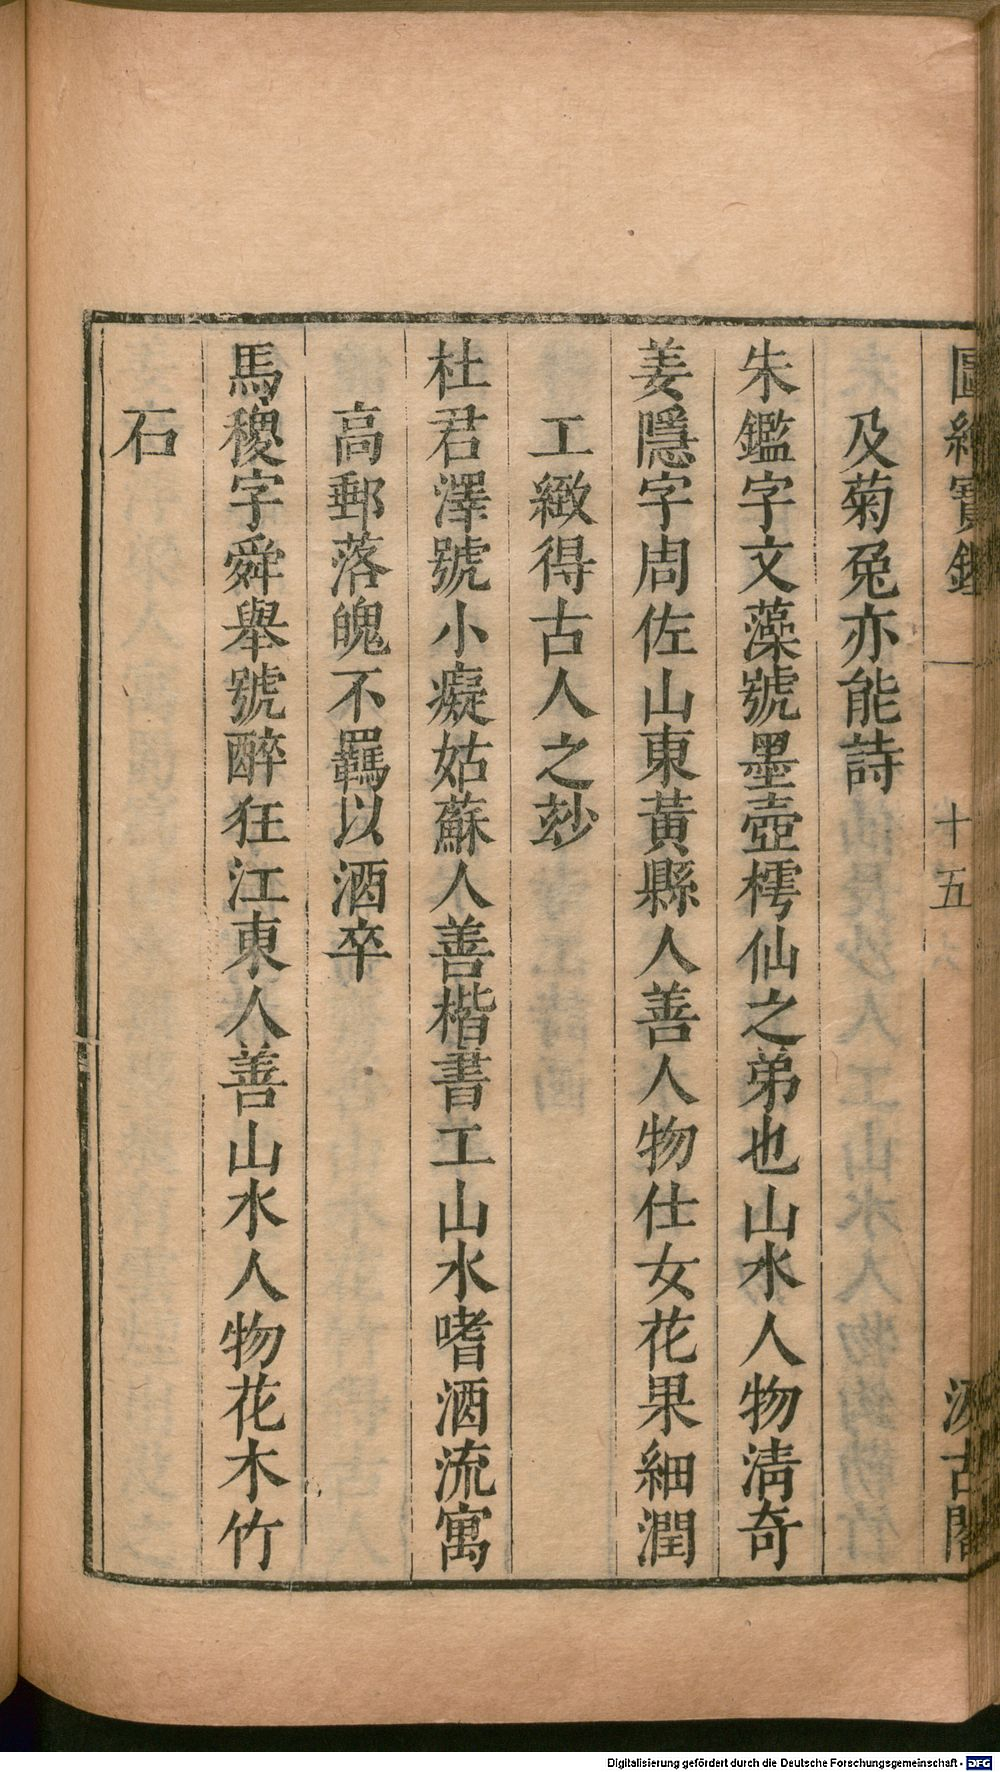 圖繪寶鑑 十五 汲古閣
及菊兔亦能詩
朱鑑字文藻號墨壺樗仙之弟也山水人物清奇
姜隱字周佐山東黃縣人善人物仕女花果細潤
工緻得古人之玅
杜君澤號小癡姑蘇人善楷書工山水嗜酒流寓
高郵落魄不羈以酒卒
馬稷字舜舉號醉狂江東人善山水人物花木竹
石
Digitalisierung gefördert durch die Deutsche Forschungsgemeinschaft - DFG